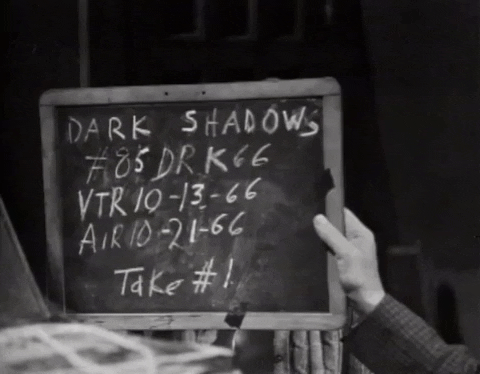 DARK SHADOWS
#85 DRK66
VTR 10-13-66
AIR 10-21-66
Take #1